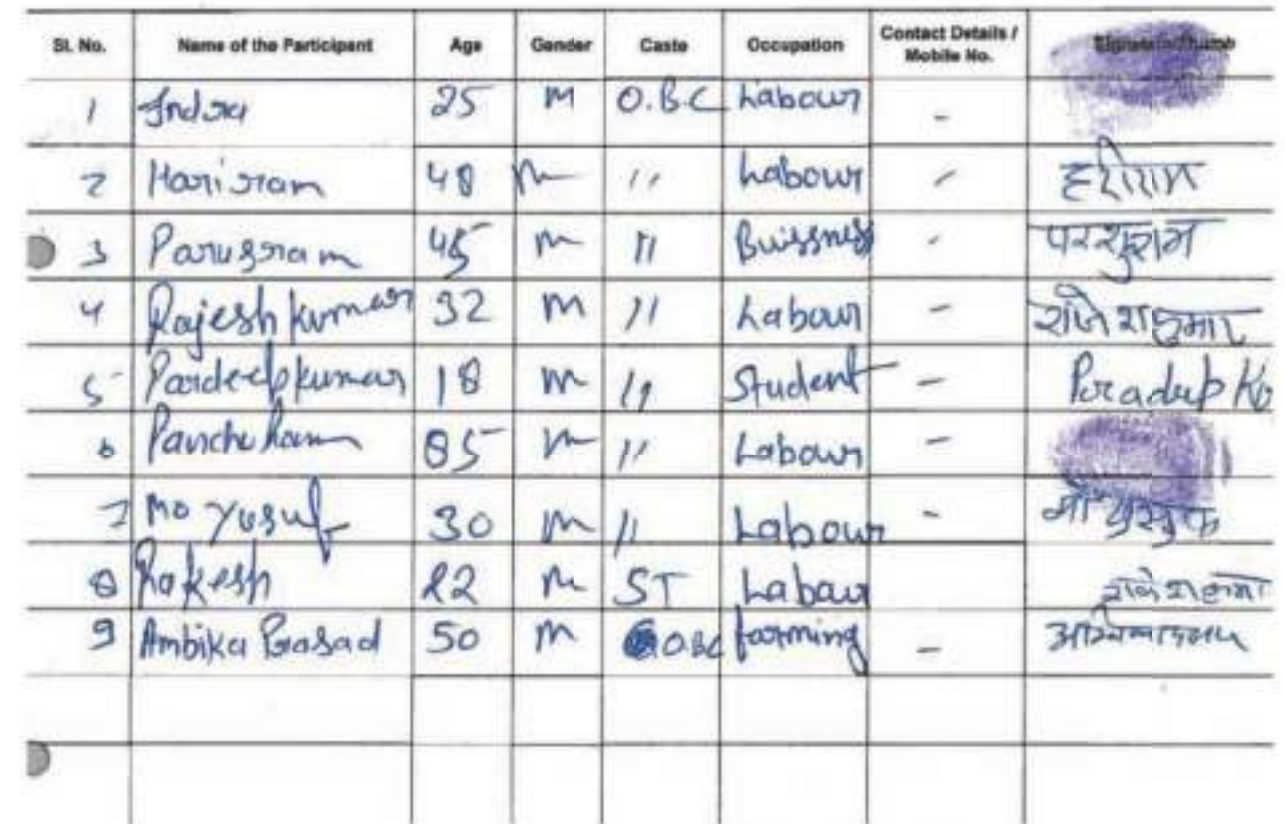 Sl. No. Name of the Participant Age Gender Caste Occupation Contact Details / Mobile No. Signature/Thumb
1 Indra 25 M O.B.C Labour -
2 Hariram 48 M " Labour - हरीराम
3 Parusram 45 M " Buissness - परशुराम
4 Rajesh kumar 32 M " Labour - राजेशकुमार
5 Pardeep kumar 18 M " Student - Pradeep Ku
6 Panchu Ram 85 M " Labour -
7 Mo Yusuf 30 M " Labour - मो युसुफ
8 Rakesh 22 M ST Labour
9 Ambika Prasad 50 M O.B.C farming -